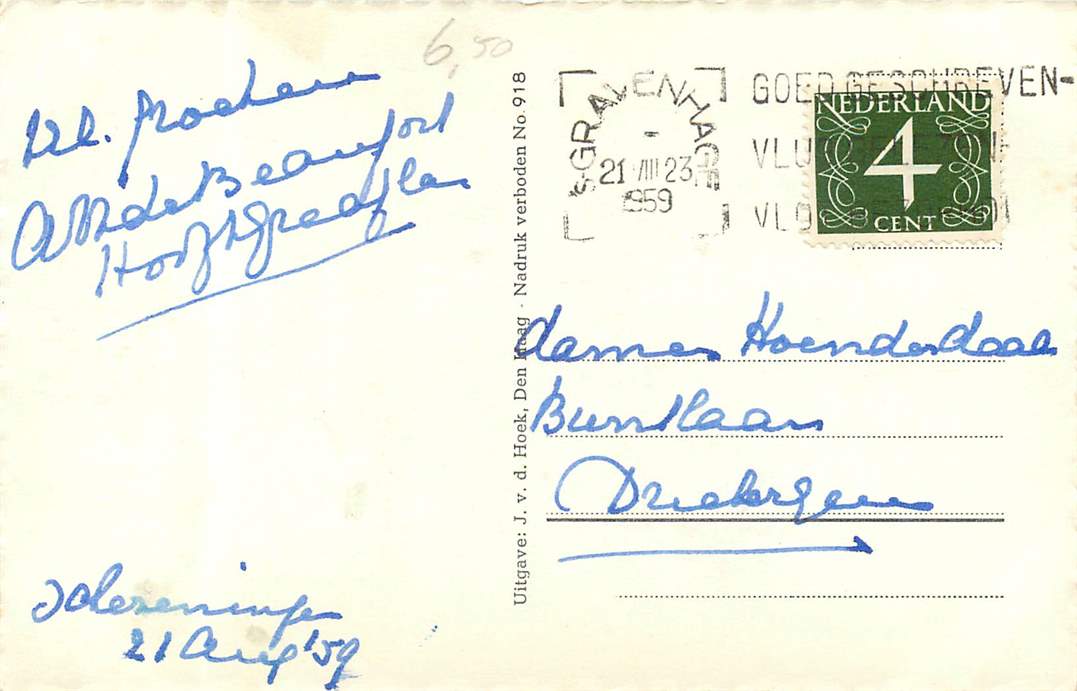 6,50
A M de Beaufort
Scheveningen
21 Aug '59
Uitgave: J. v. d. Hoek, Den Haag · Nadruk verboden No. 918
's-GRAVENHAGE
21 VIII 23
1959
GOED GESCHREVEN-
VLU
VLO
NEDERLAND
4
CENT
dames Hoenderdaal
Buntlaan
Driebergen